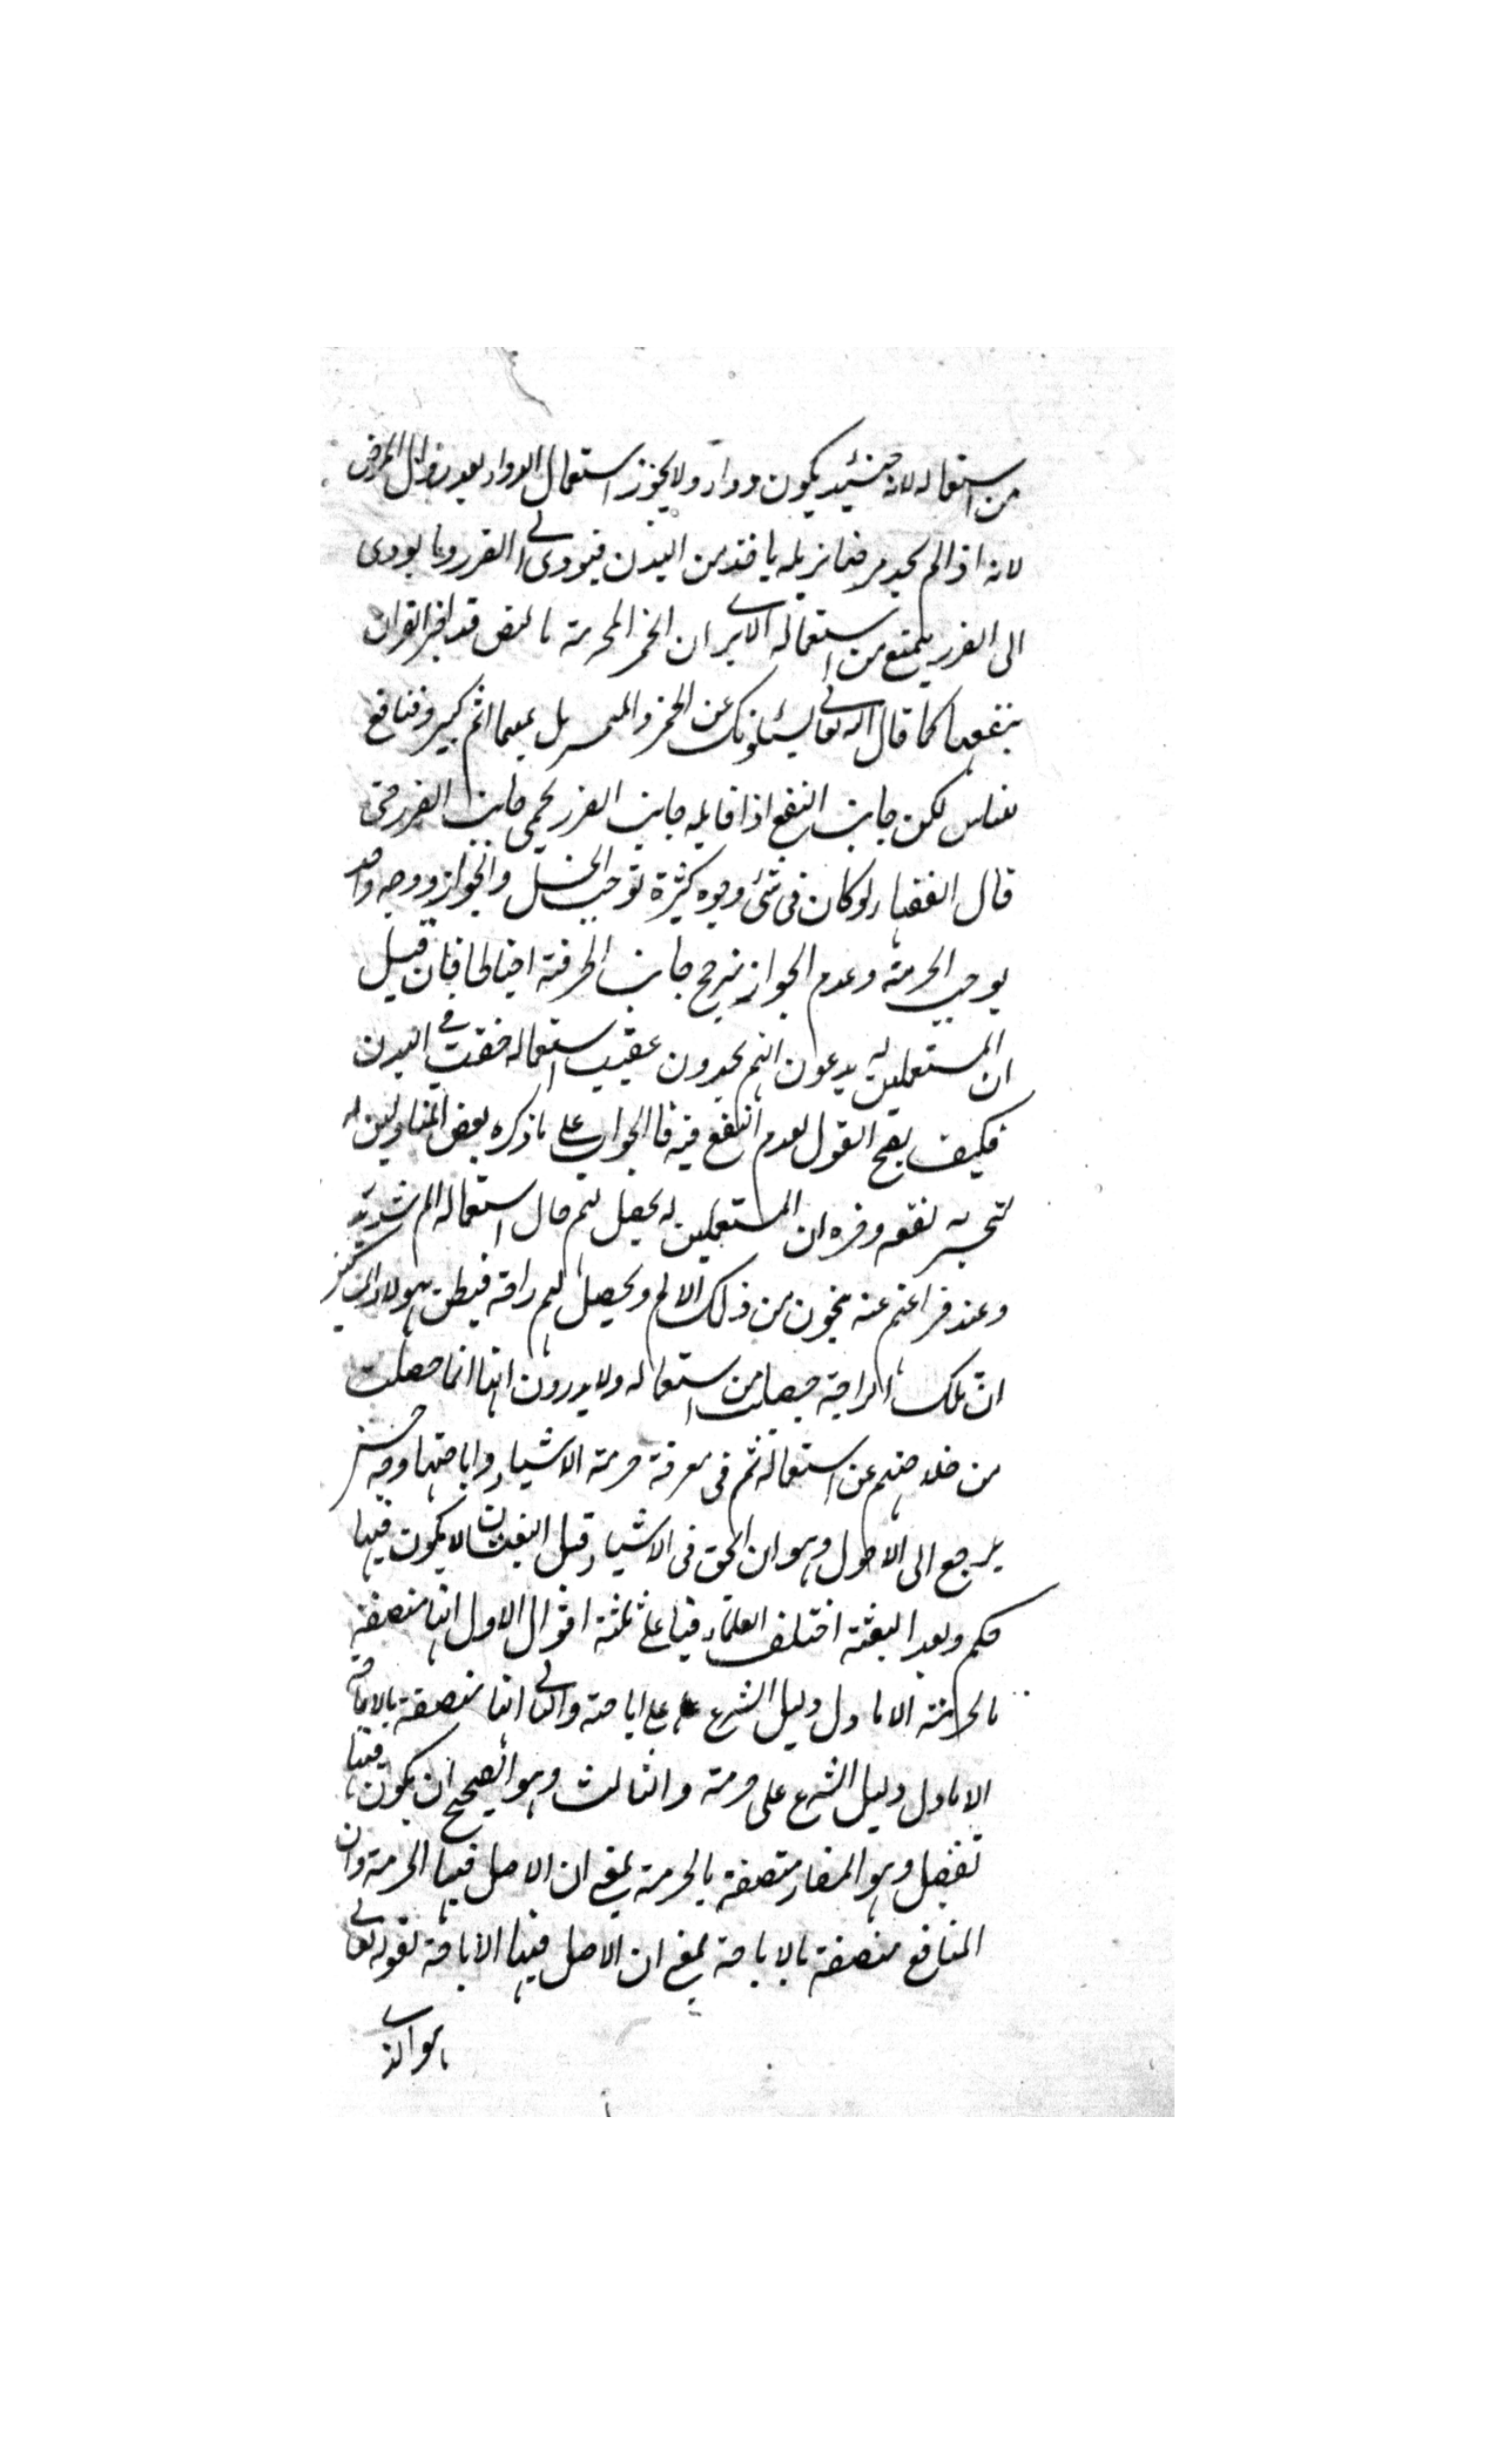 من استعماله لانه حينئيد يكون دواء ولا يجوز استعمال الدواء بعد زوال المرض
لانه اذا لم يجد مرضا يزيله ياخذ من البدن فيؤدى الى الضرر وما يودى
الى الضرر يمتنع من استعماله الا يرى ان الخمر المحرمة بالنص قد اخبر القران
بنفعها كما قال الله تعالى يسئلونك عن الخمر والميسر قل فيهما اثم كبير ومنافع
للناس لكن جانب النفع اذا قابله جانب الضرر يحمى جانب الضرر حتى
قال الفقهاء لو كان فى شئ وجوه كثيرة توجب الحل والجواز ووجه واحد
يوجب الحرمة وعدم الجواز يرجح جانب الحرمة احتياطا فان قيل
ان المستعملين له يدعون انهم يجدون عقيب استعماله خفة فى البدن
فكيف يصح القول بعدم النفع فيه فالجواب على ما ذكره بعض المتناولين له
لتجربه نفعه وضره ان المستعملين له يحصل لهم حال استعماله الم شديد
وعند فراغهم عنه ينجون من ذلك الالم ويحصل لهم راحة فيظن هؤلاء
ان تلك الراحة حصلت من استعماله ولا يدرون انها انما حصلت
من خلاصهم عن استعماله ثم فى معرفة حرمة الاشياء واباحتها وجه حسن
يرجع الى الاصول وهو ان الحق فى الاشياء قبل البعث ان لا يكون فيها
حكم وبعد البعثة اختلف العلماء فيها على ثلثة اقوال الاول انها متصفة
بالحرمة الا ما دل دليل الشرع على اباحته والثانى انها متصفة بالاباحة
الا ما دل دليل الشرع على حرمته والثالث وهو الصحيح ان يكون فيها
تفصيل وهو المضار متصفة بالحرمة بمعنى ان الاصل فيها الحرمة وان
المنافع متصفة بالاباحة بمعنى ان الاصل فيها الاباحة لقوله تعالى
هو الذى